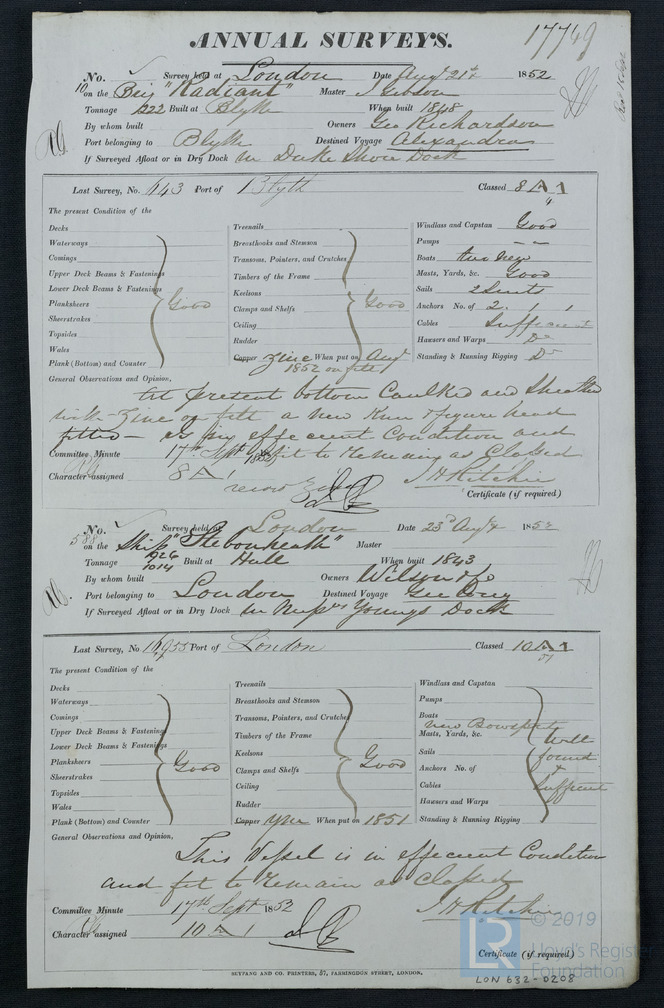 17749
ANNUAL SURVEYS.
No. Survey held at London Date Augt 21st 1852
10 on the Brig "Radiant" Master J Gibson
Tonnage 222 Built at Blyth When built 1848
By whom built Owners Geo Richardson
Port belonging to Blyth Destined Voyage Alexandra
If Surveyed Afloat or in Dry Dock in Duke Shore Dock
Last Survey, No. 643 Port of Blyth Classed 8 A 1
The present Condition of the
Decks
Waterways
Comings
Upper Deck Beams & Fastenings
Lower Deck Beams & Fastenings
Planksheers Good
Sheerstrakes
Topsides
Wales
Plank (Bottom) and Counter
Treenails
Breasthooks and Stemson
Transoms, Pointers, and Crutches
Timbers of the Frame
Keelsons
Clamps and Shelfs Good
Ceiling
Rudder
Copper Zinc When put on Augt
1852 on felt
Windlass and Capstan Good
Pumps "
Boats two new
Masts, Yards, &c. Good
Sails 2 Suits
Anchors No. of 2, 1, 1
Cables Sufficient
Hawsers and Warps Do
Standing & Running Rigging Do
General Observations and Opinion,
At present bottom Caulked and Sheathed
with Zinc on felt a new figure head
fitted — is in effecient Condition and
fit to Remain as Classed
Committee Minute 17th Sept 1852
Character assigned 8 A
J H Ritchie
Certificate (if required)
No. Survey held at London Date 23d Augt 1852
588 on the Ship "Blebonheath" Master
Tonnage 926 1014 Built at Hull When built 1843
By whom built Owners Wilson & Co
Port belonging to London Destined Voyage Geelong
If Surveyed Afloat or in Dry Dock in Youngs Dock
Last Survey, No. 16955 Port of London Classed 10 A 1
51
The present Condition of the
Decks
Waterways
Comings
Upper Deck Beams & Fastenings
Lower Deck Beams & Fastenings
Planksheers Good
Sheerstrakes
Topsides
Wales
Plank (Bottom) and Counter
Treenails
Breasthooks and Stemson
Transoms, Pointers, and Crutches
Timbers of the Frame
Keelsons
Clamps and Shelfs Good
Ceiling
Rudder
Copper When put on 1851
Windlass and Capstan
Pumps
Boats
new Bowsprit
Masts, Yards, &c. Well
Sails found
Anchors No. of &
Cables Sufficient
Hawsers and Warps
Standing & Running Rigging
General Observations and Opinion,
This Vessel is in effecient Condition
and fit to remain as Classed
Committee Minute 17th Sept 1852
J H Ritchie
Character assigned 10 A 1
Certificate (if required)
SCYFANG AND CO. PRINTERS, 57, FARRINGDON STREET, LONDON.
© 2019
LR
Lloyd's Register
Foundation
LON 632-0208